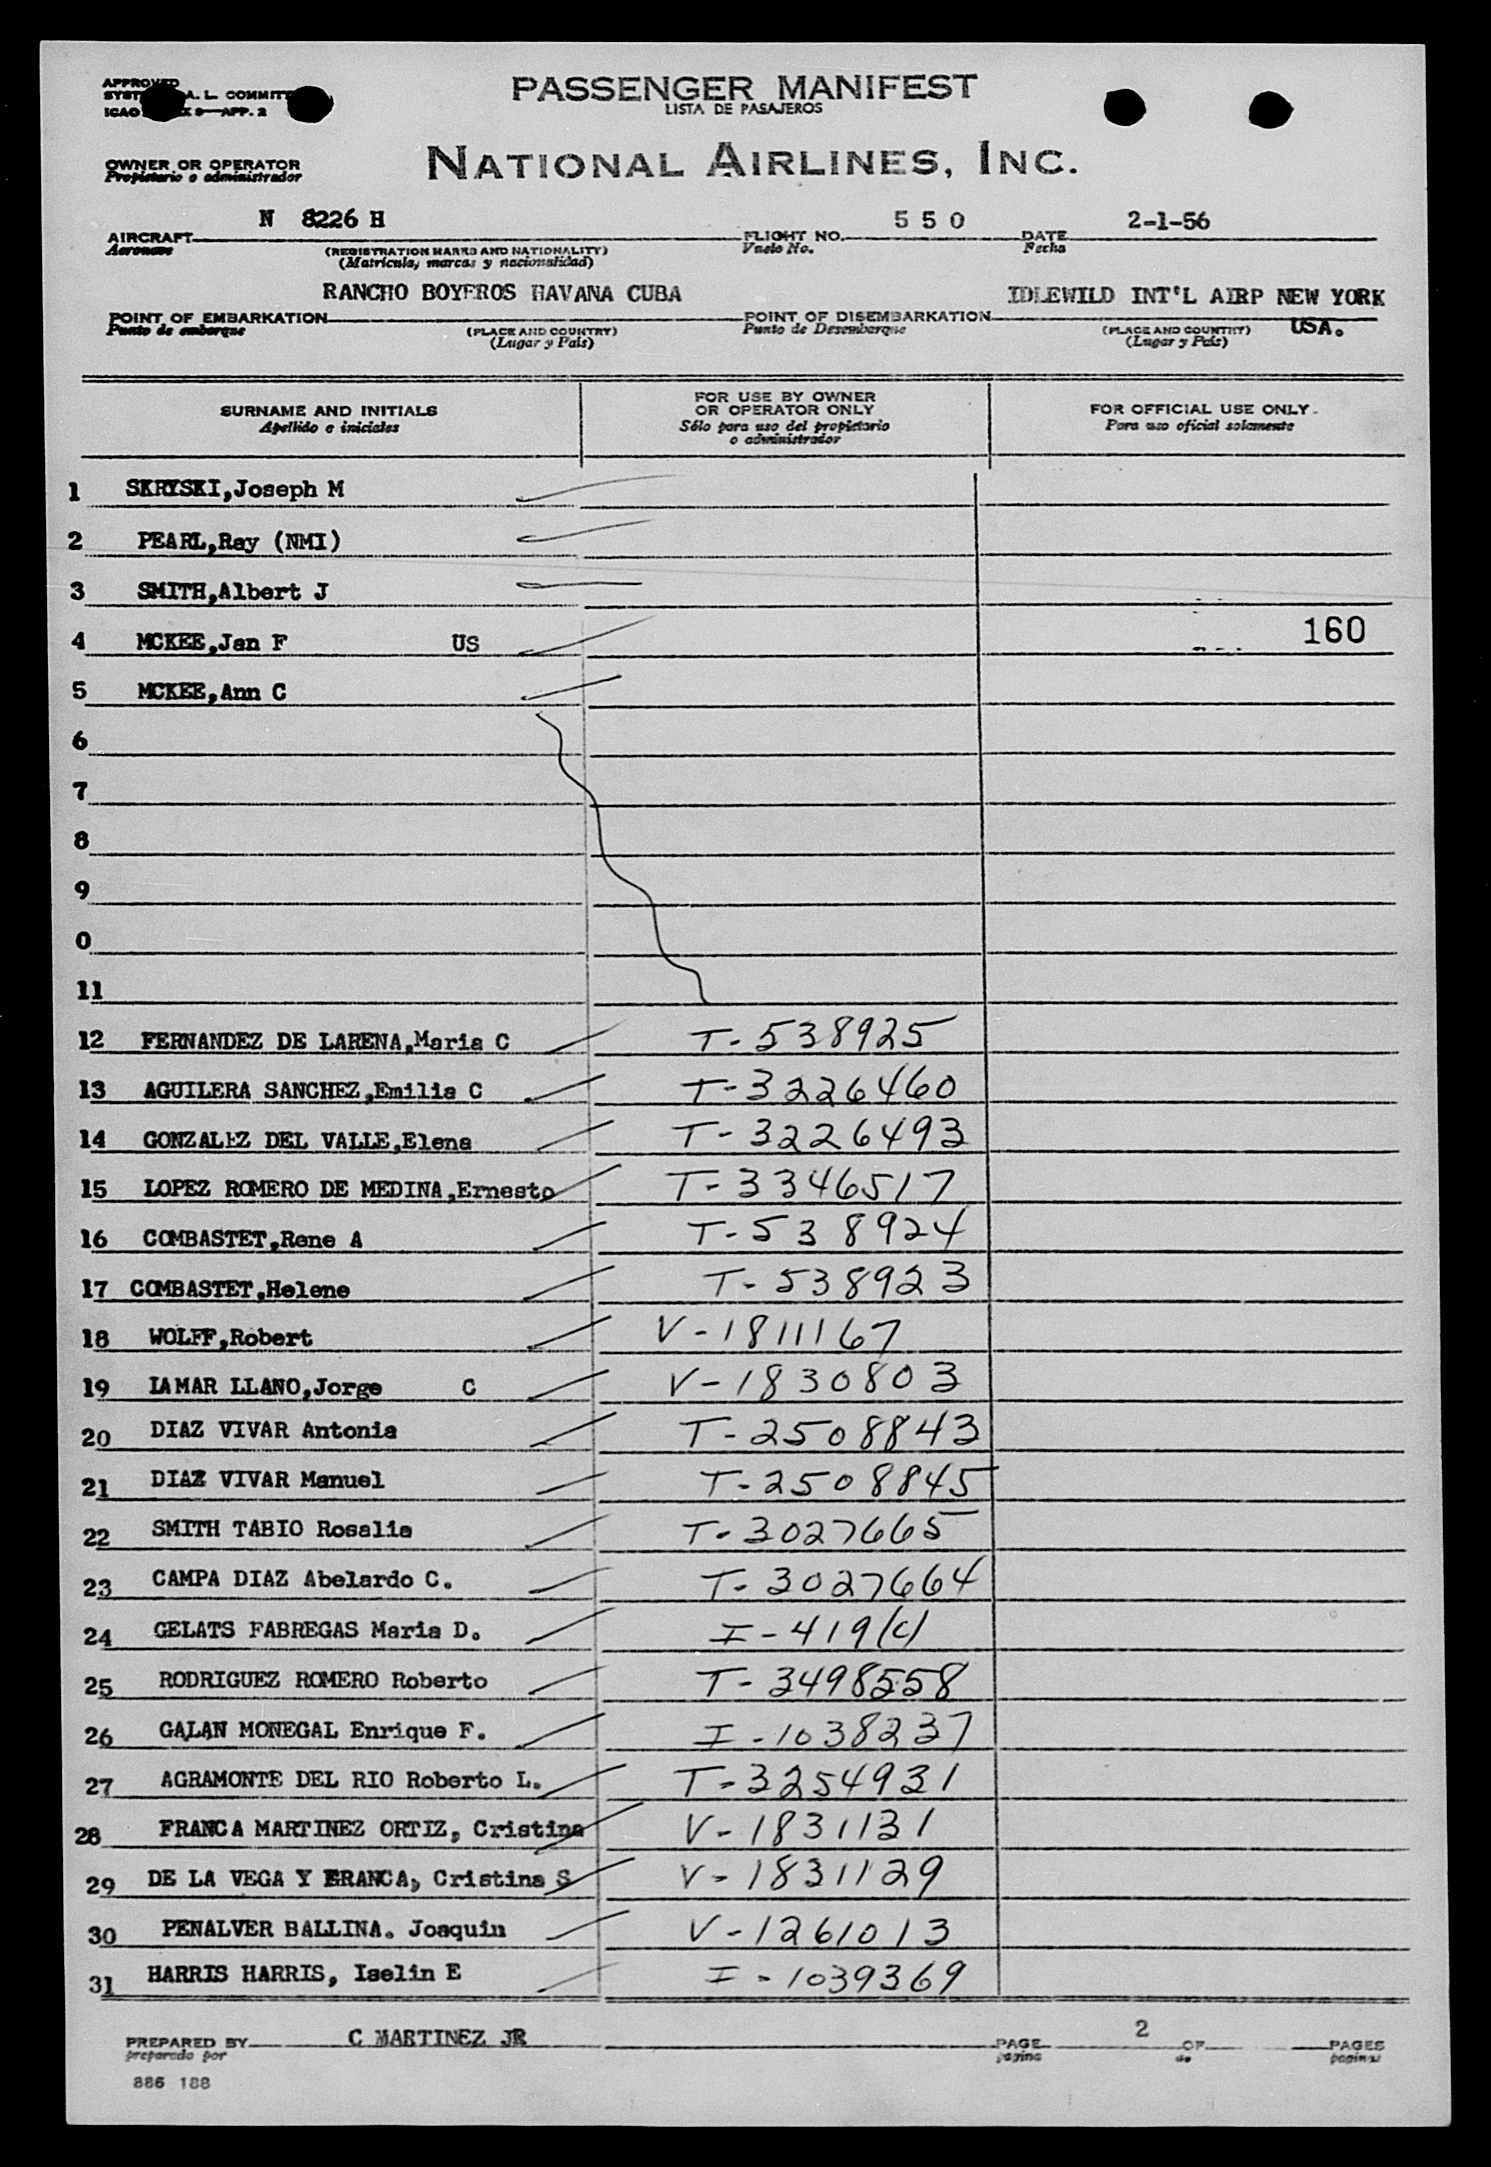 APPROVED
PASSENGER MANIFEST
LISTA DE PASAJEROS
A. L. COMMITT
ICAO 9—APP. 2
OWNER OR OPERATOR
Propietario o administrador
NATIONAL AIRLINES, INC.
AIRCRAFT N 8226 H FLIGHT NO. 5 5 0 DATE 2-1-56
Aeronave (REGISTRATION MARKS AND NATIONALITY) Vuelo No. Fecha
(Matricula, marcas y nacionalidad)
RANCHO BOYEROS HAVANA CUBA IDLEWILD INT'L AIRP NEW YORK
POINT OF EMBARKATION POINT OF DISEMBARKATION
Punto de embarque (PLACE AND COUNTRY) Punto de Desembarque (PLACE AND COUNTRY) USA.
(Lugar y País) (Lugar y País)
SURNAME AND INITIALS FOR USE BY OWNER OR OPERATOR ONLY FOR OFFICIAL USE ONLY.
Apellido e iniciales Sólo para uso del propietario o administrador Para uso oficial solamente
1 SKRYSKI,Joseph M
2 PEARL,Ray (NMI)
3 SMITH,Albert J
4 MCKEE,Jan F US 160
5 MCKEE,Ann C
6
7
8
9
0
11
12 FERNANDEZ DE LARENA,Maria C T-538925
13 AGUILERA SANCHEZ,Emilia C T-3226460
14 GONZALEZ DEL VALLE,Elena T-3226493
15 LOPEZ ROMERO DE MEDINA,Ernesto T-3346517
16 COMBASTET,Rene A T-538924
17 COMBASTET,Helene T-538923
18 WOLFF,Robert V-1811167
19 LAMAR LLANO,Jorge C V-1830803
20 DIAZ VIVAR Antonia T-2508843
21 DIAZ VIVAR Manuel T-2508845
22 SMITH TABIO Rosalia T-3027665
23 CAMPA DIAZ Abelardo C. T-3027664
24 GELATS FABREGAS Maria D. I-419(c)
25 RODRIGUEZ ROMERO Roberto T-3498558
26 GALAN MONEGAL Enrique F. I-1038237
27 AGRAMONTE DEL RIO Roberto L. T-3254931
28 FRANCA MARTINEZ ORTIZ, Cristina V-1831131
29 DE LA VEGA Y FRANCA, Cristina S V-1831129
30 PENALVER BALLINA. Joaquin V-1261013
31 HARRIS HARRIS, Iselin E I-1039369
PREPARED BY C MARTINEZ JR PAGE 2 OF PAGES
preparado por página de paginas
886 188